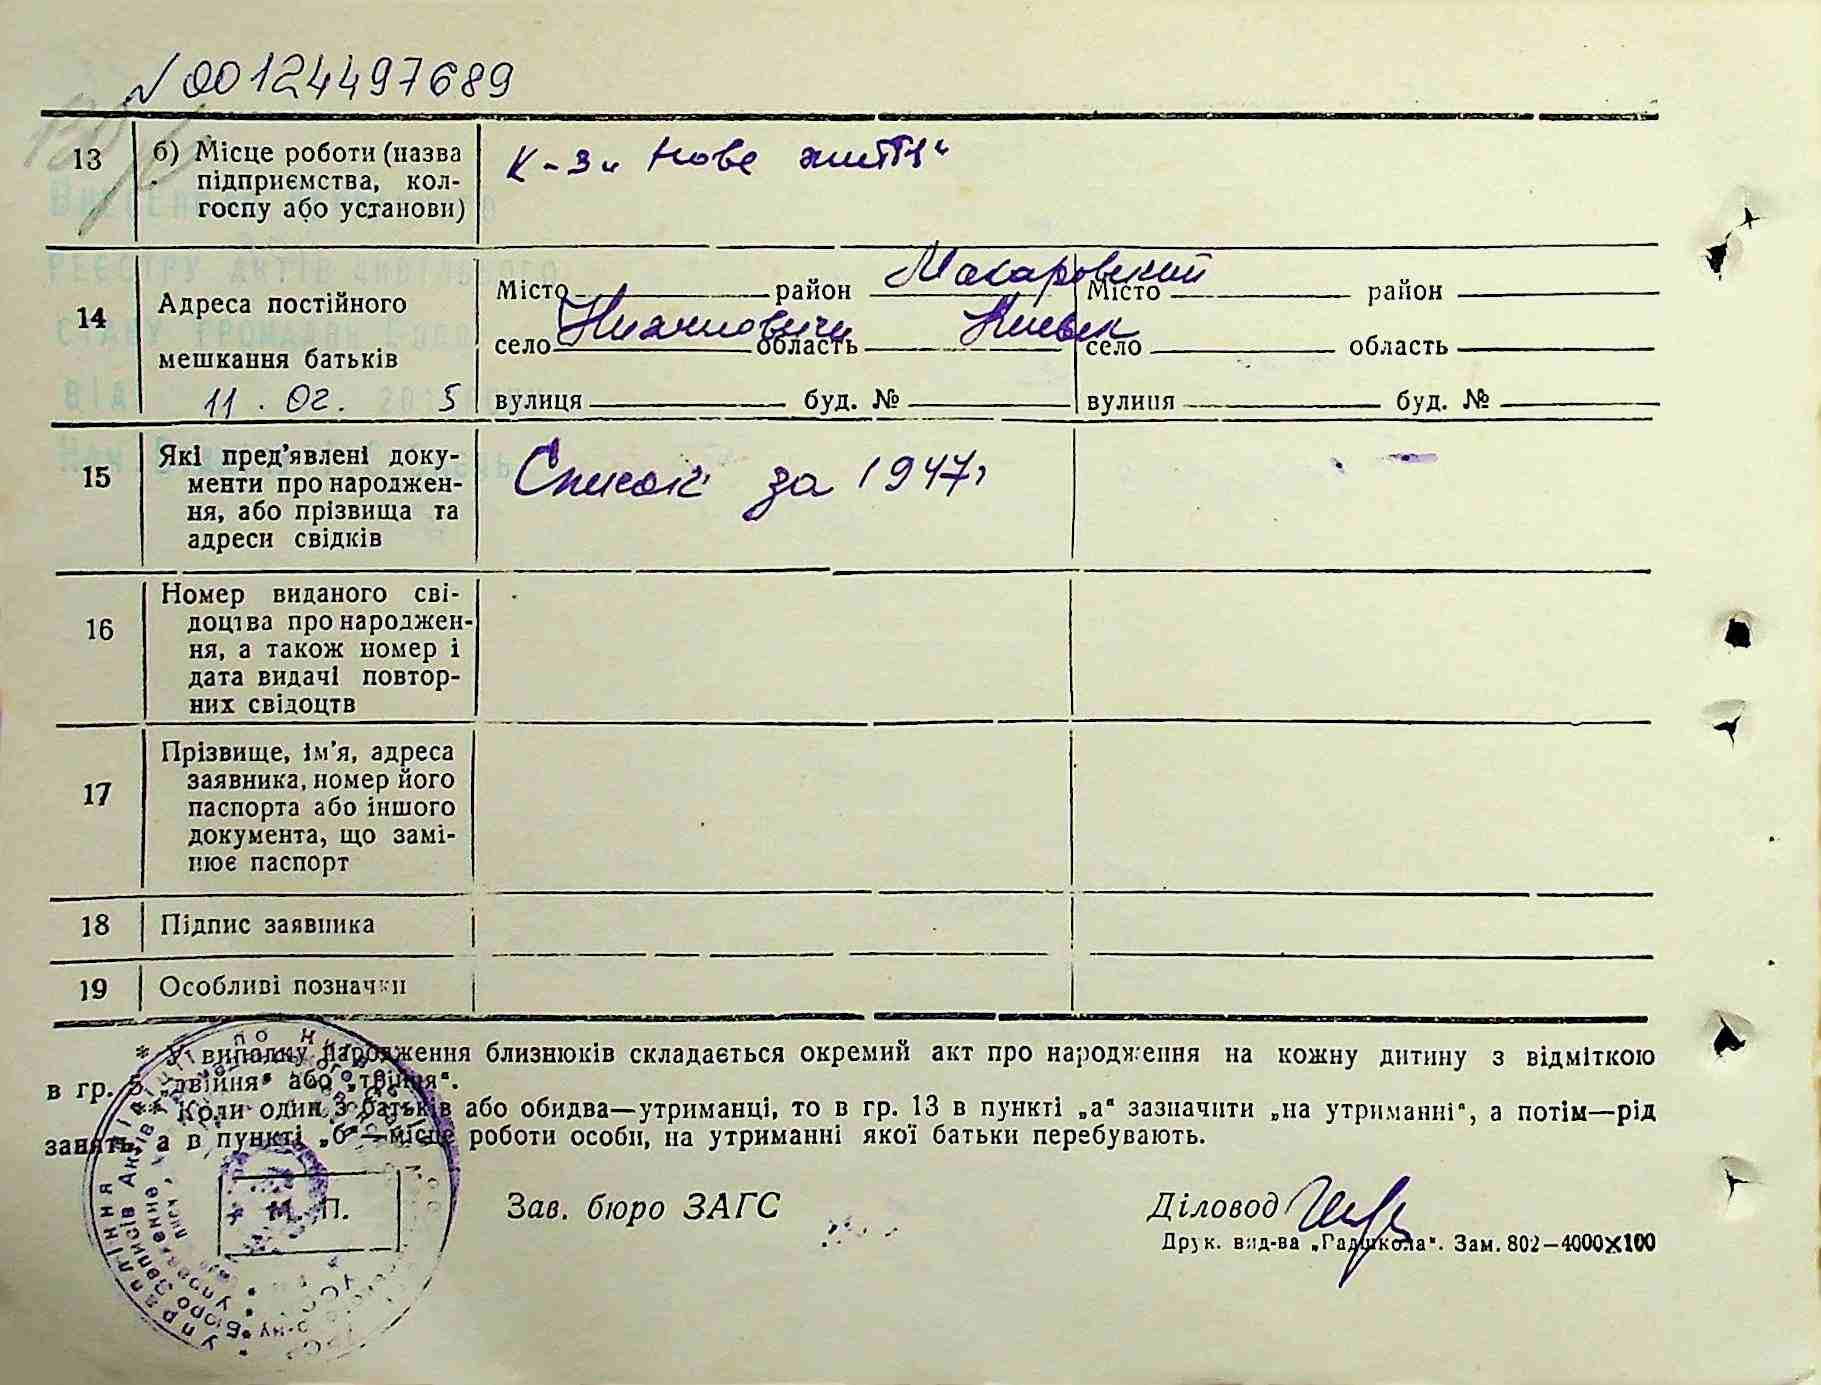 № 00124497689
13
б) Місце роботи (назва
підприємства, кол-
госпу або установи)
к-з „Нове життя“
14
Адреса постійного
мешкання батьків
11. 02. 5
Місто район Макаровский
село Нижиловичи область Киевск
вулиця буд. №
Місто район
село область
вулиця буд. №
15
Які пред’явлені доку-
менти про народжен-
ня, або прізвища та
адреси свідків
Список за 1947г
16
Номер виданого сві-
доцтва про народжен-
ня, а також номер і
дата видачі повтор-
них свідоцтв
17
Прізвище, ім’я, адреса
заявника, номер його
паспорта або іншого
документа, що замі-
нює паспорт
18
Підпис заявника
19
Особливі позначки
* У випадку народження близнюків складається окремий акт про народження на кожну дитину з відміткою
в гр. 5 „двійня“ або „трійня“.
* Коли один з батьків або обидва—утриманці, то в гр. 13 в пункті „а“ зазначити „на утриманні“, а потім—рід
занять, а в пункті „б“—місце роботи особи, на утриманні якої батьки перебувають.
М. П.
Зав. бюро ЗАГС
Діловод
Друк. вид-ва „Радшкола“. Зам. 802—4000×100